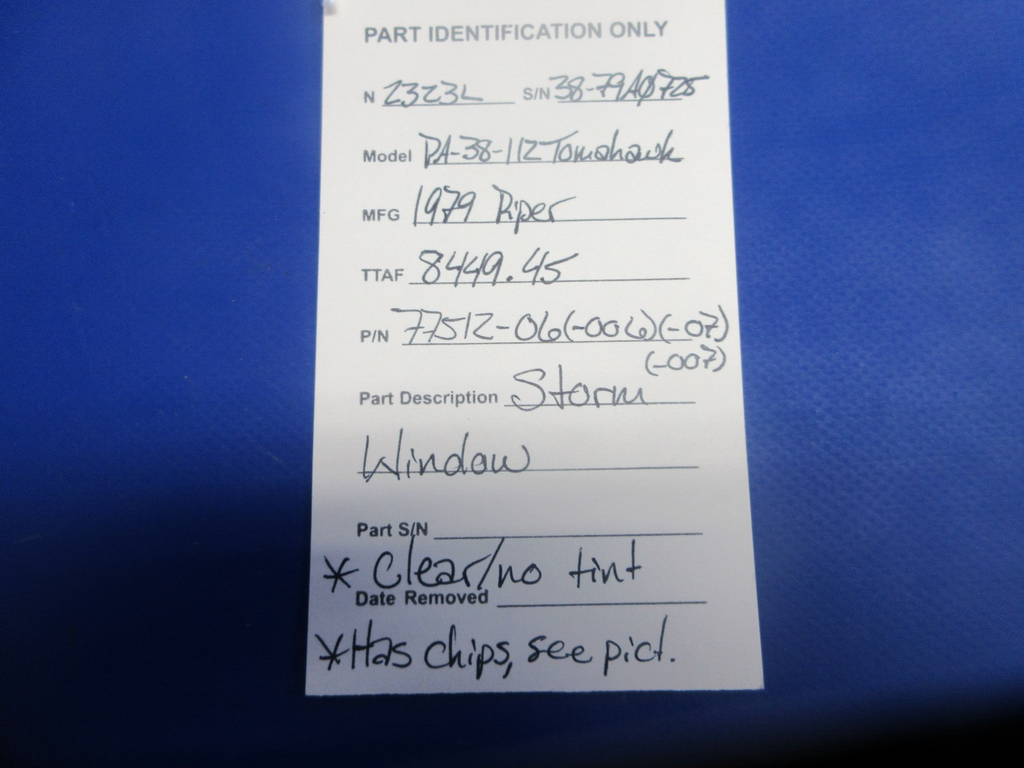 PART IDENTIFICATION ONLY
N 2323L S/N 38-79A0725
Model PA-38-112 Tomahawk
MFG 1979 Piper
TTAF 8449.45
P/N 77512-06(-006)(-07)
(-007)
Part Description Storm
Window
Part S/N
* Clear/no tint
Date Removed
*Has chips, see pict.